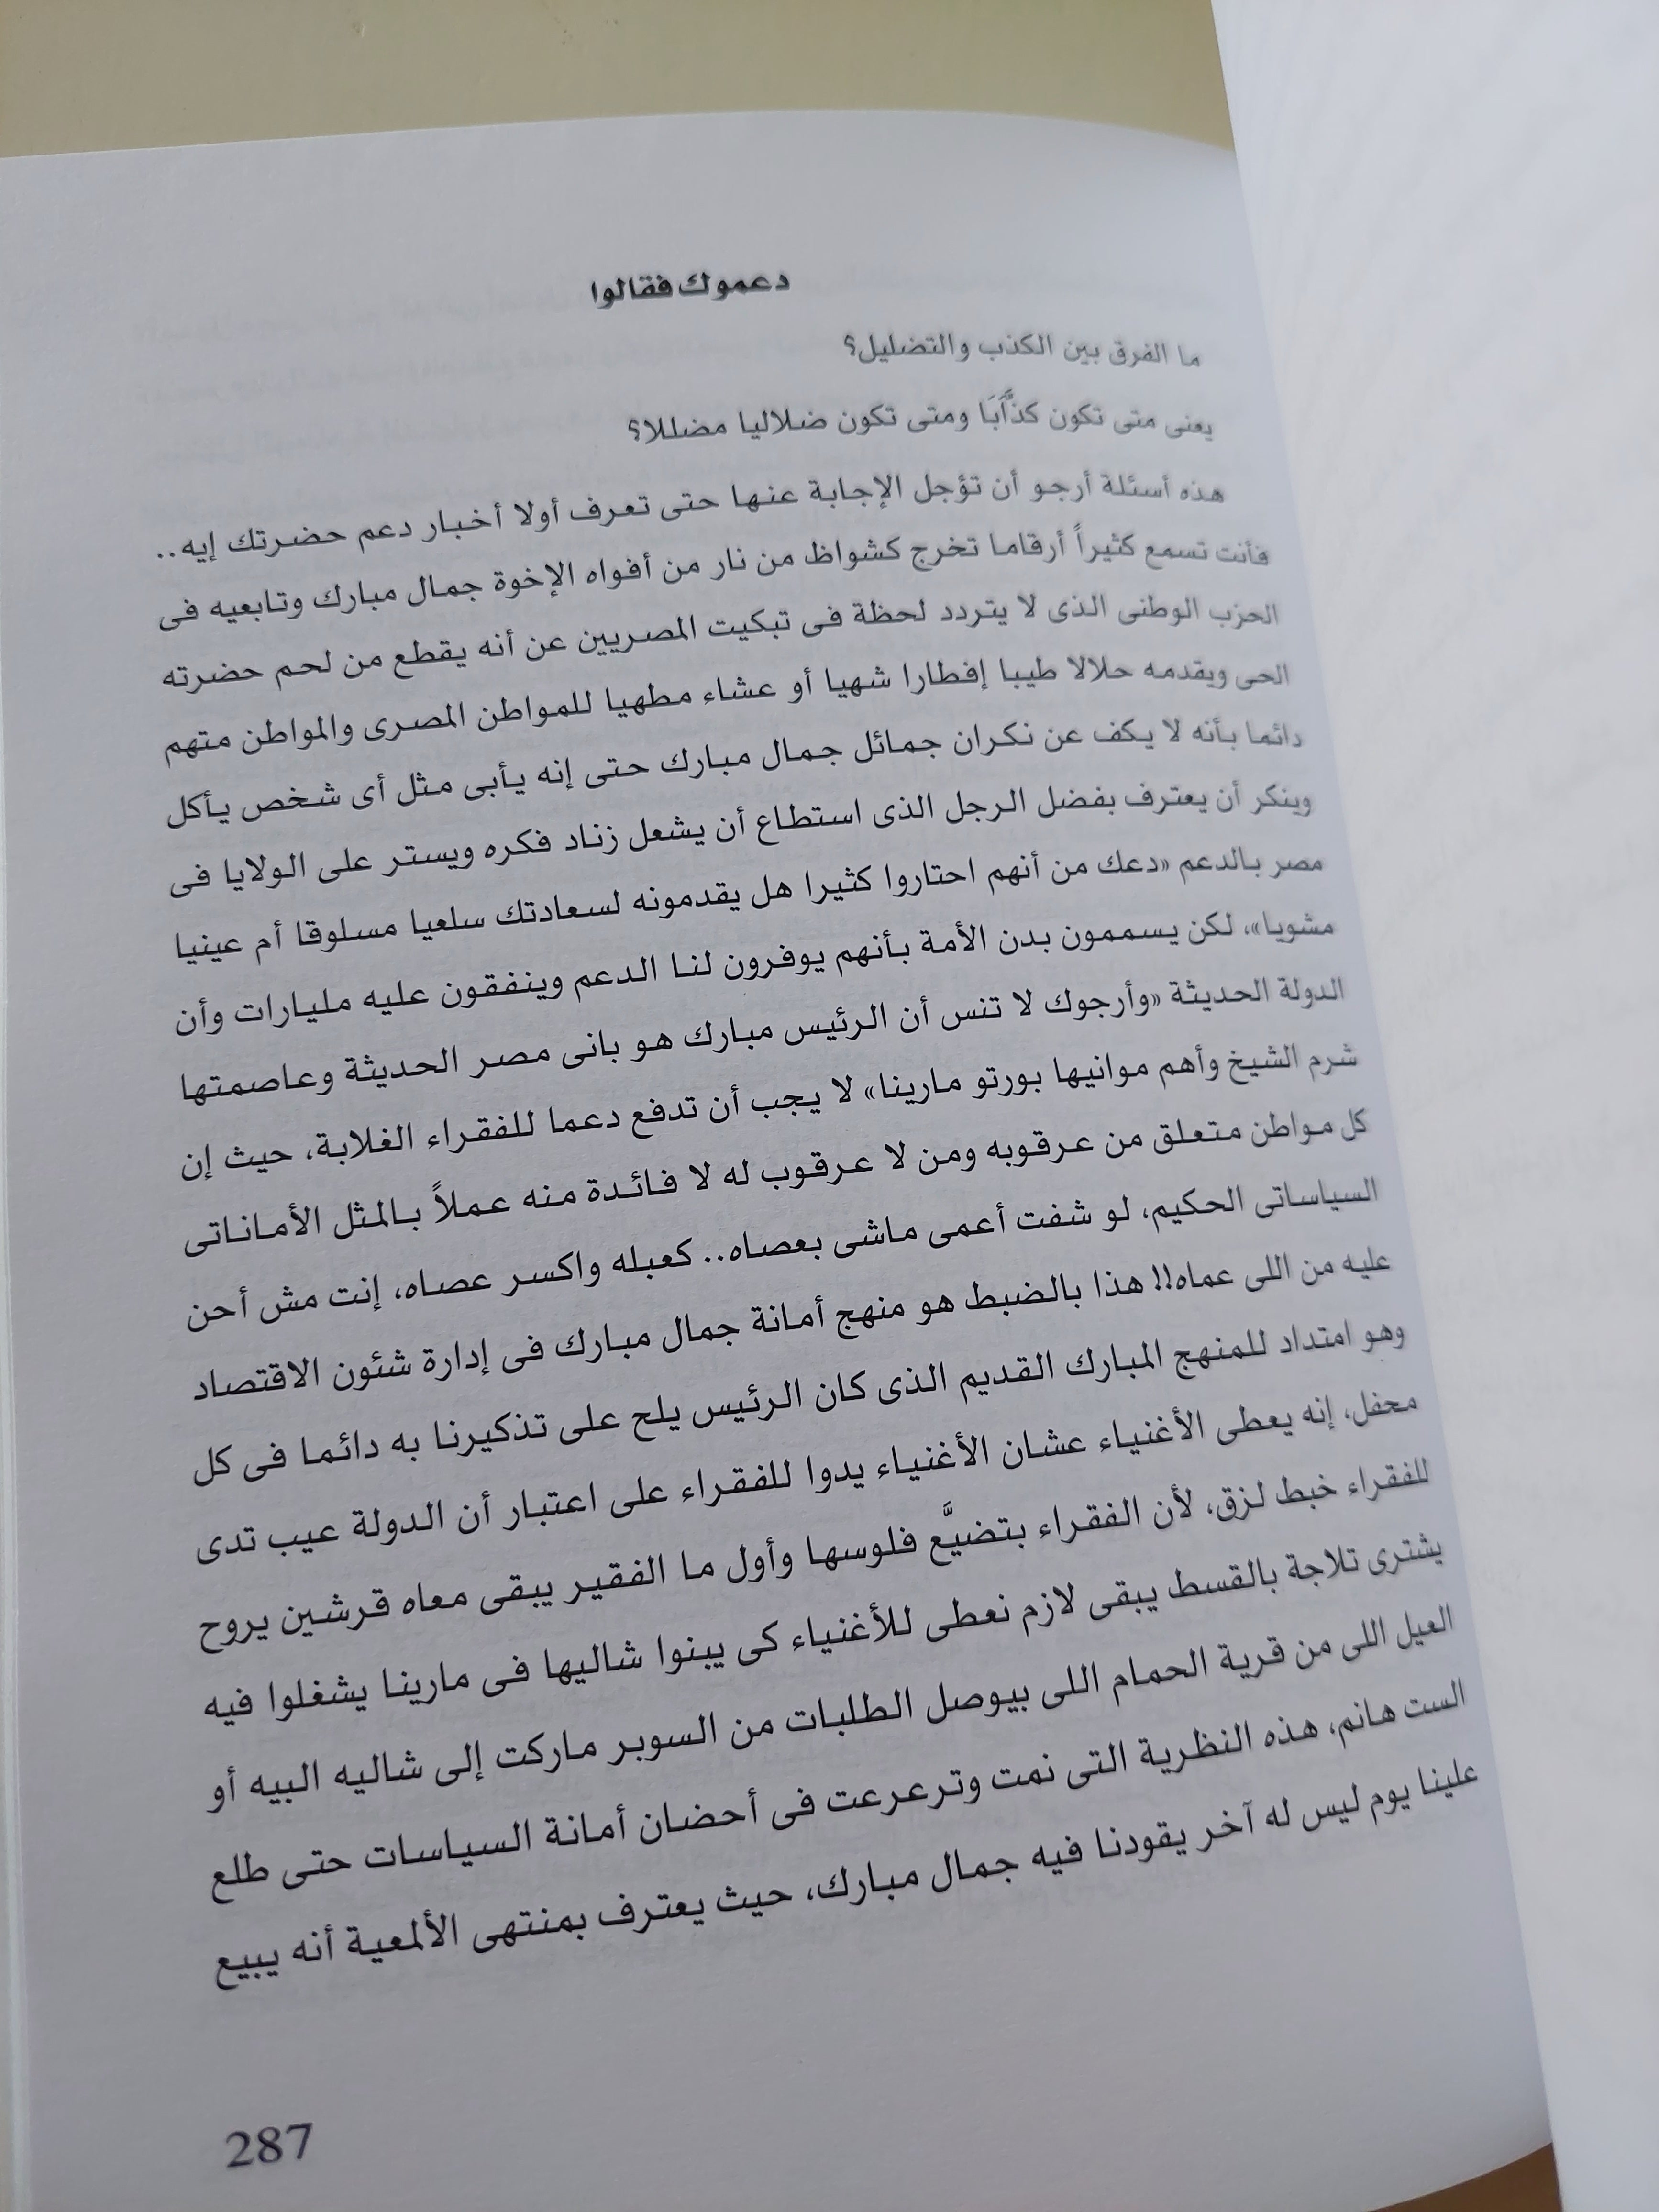 دعموك فقالوا
ما الفرق بين الكذب والتضليل؟
يعنى متى تكون كذَّابًا ومتى تكون ضلاليا مضللا؟
هذه أسئلة أرجو أن تؤجل الإجابة عنها حتى تعرف أولا أخبار دعم حضرتك إيه..
فأنت تسمع كثيراً أرقاما تخرج كشواظ من نار من أفواه الإخوة جمال مبارك وتابعيه فى
الحزب الوطنى الذى لا يتردد لحظة فى تبكيت المصريين عن أنه يقطع من لحم حضرته
الحى ويقدمه حلالا طيبا إفطارا شهيا أو عشاء مطهيا للمواطن المصرى والمواطن متهم
دائما بأنه لا يكف عن نكران جمائل جمال مبارك حتى إنه يأبى مثل أى شخص يأكل
وينكر أن يعترف بفضل الرجل الذى استطاع أن يشعل زناد فكره ويستر على الولايا فى
مصر بالدعم «دعك من أنهم احتاروا كثيرا هل يقدمونه لسعادتك سلعيا مسلوقا أم عينيا
مشويا»، لكن يسممون بدن الأمة بأنهم يوفرون لنا الدعم وينفقون عليه مليارات وأن
الدولة الحديثة «وأرجوك لا تنس أن الرئيس مبارك هو بانى مصر الحديثة وعاصمتها
شرم الشيخ وأهم موانيها بورتو مارينا» لا يجب أن تدفع دعما للفقراء الغلابة، حيث إن
كل مواطن متعلق من عرقوبه ومن لا عرقوب له لا فائدة منه عملاً بالمثل الأماناتى
السياساتى الحكيم، لو شفت أعمى ماشى بعصاه.. كعبله واكسر عصاه، إنت مش أحن
عليه من اللى عماه!! هذا بالضبط هو منهج أمانة جمال مبارك فى إدارة شئون الاقتصاد
وهو امتداد للمنهج المبارك القديم الذى كان الرئيس يلح على تذكيرنا به دائما فى كل
محفل، إنه يعطى الأغنياء عشان الأغنياء يدوا للفقراء على اعتبار أن الدولة عيب تدى
للفقراء خبط لزق، لأن الفقراء بتضيَّع فلوسها وأول ما الفقير يبقى معاه قرشين يروح
يشترى تلاجة بالقسط يبقى لازم نعطى للأغنياء كى يبنوا شاليها فى مارينا يشغلوا فيه
العيل اللى من قرية الحمام اللى بيوصل الطلبات من السوبر ماركت إلى شاليه البيه أو
الست هانم، هذه النظرية التى نمت وترعرعت فى أحضان أمانة السياسات حتى طلع
علينا يوم ليس له آخر يقودنا فيه جمال مبارك، حيث يعترف بمنتهى الألمعية أنه يبيع
287